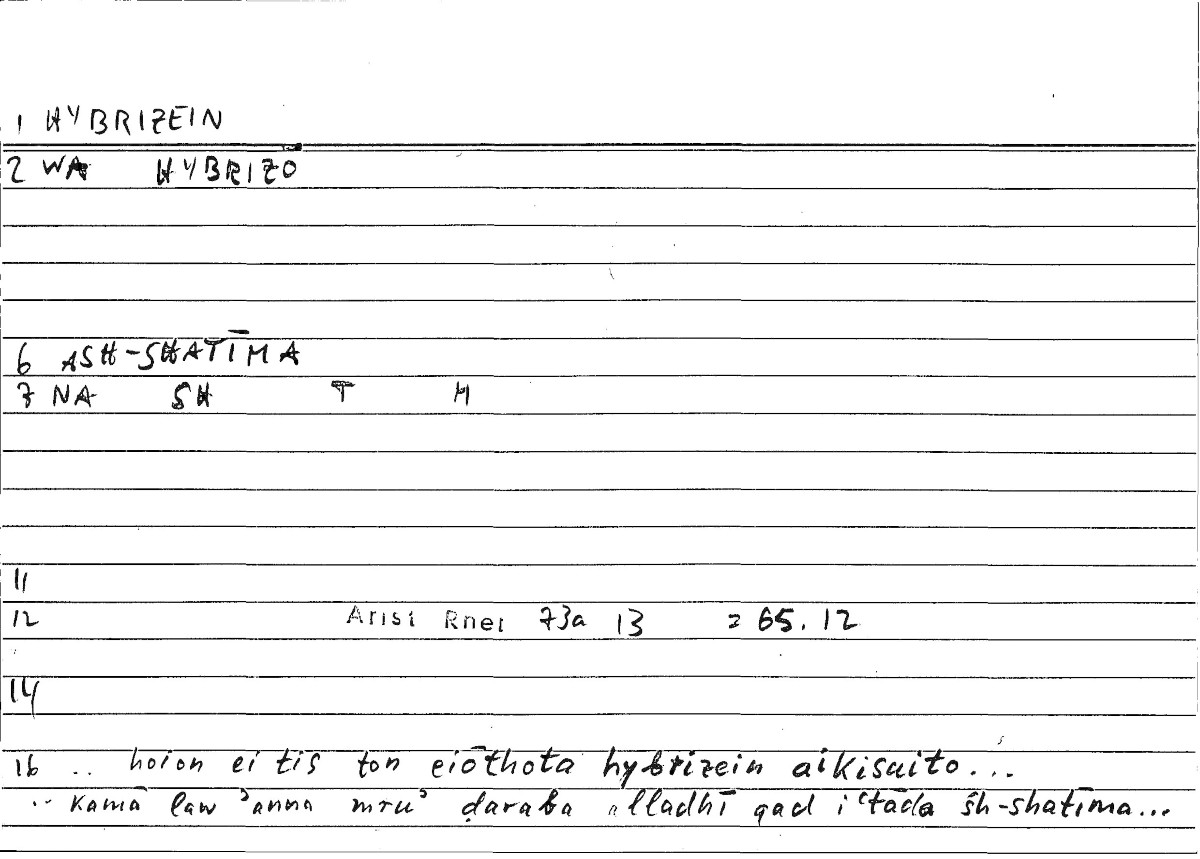 1 HYBRIZEIN
2 WA HYBRIZO
6 ASH-SHATĪMA
7 NA SH T M
11
12 Arist Rhet 73a 13 = 65.12
14
16 .. hoion ei tis ton eiōthota hybrizein aikisaito...
.. kamā law ʾanna mruʾ ḍaraba alladhī qad iʿtāda sh-shatīma...